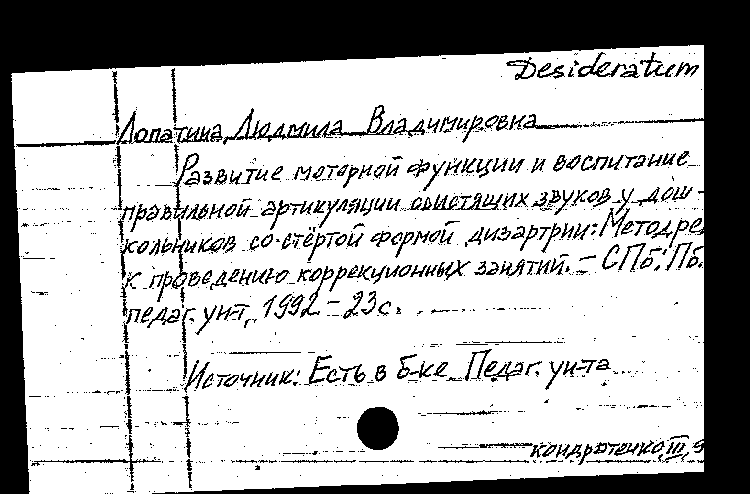 Desideratum
Лопатина, Людмила Владимировна
Развитие моторной функции и воспитание
правильной артикуляции свистящих звуков у дош-
кольников со стёртой формой дизартрии: Метод.ре
к проведению коррекционных занятий. – СПб.: Пб.
педаг. ун-т, 1992 – 23с.
Источник: Есть в б-ке Педаг. ун-та
кондратенко, III, 9